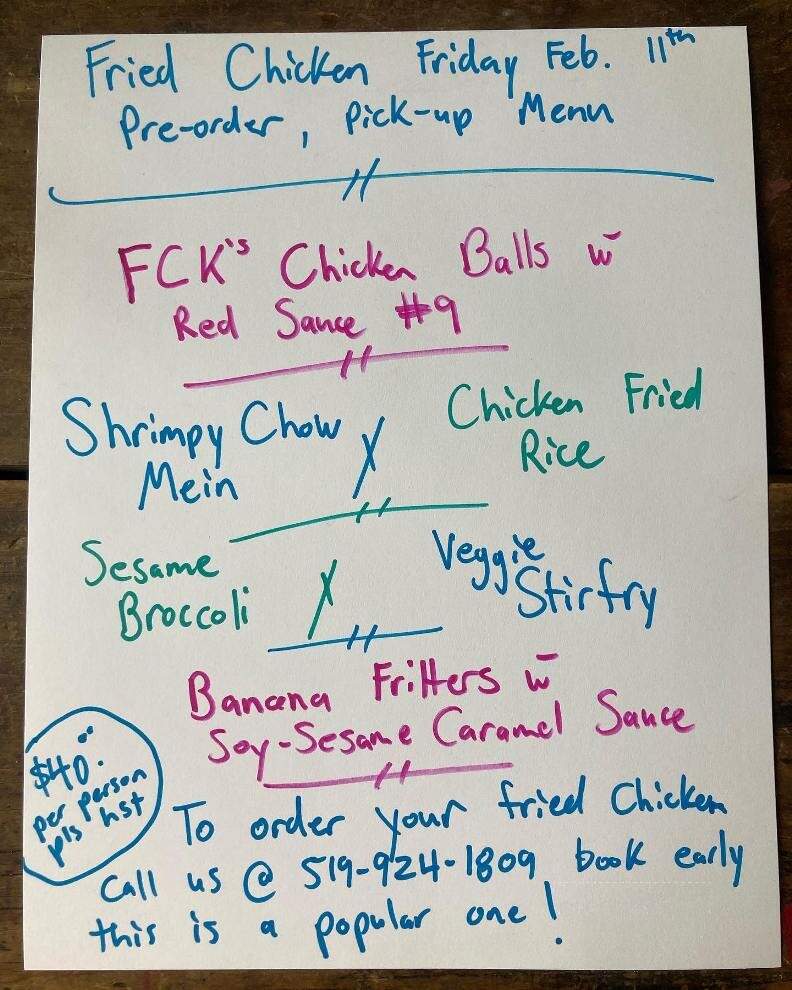 Fried Chicken Friday Feb. 11th
Pre-order, Pick-up Menu
FCK's Chicken Balls w
Red Sauce #9
Shrimpy Chow
Mein
Chicken Fried
Rice
Sesame
Broccoli
Veggie
Stirfry
Banana Fritters w
Soy-Sesame Caramel Sauce
$40.00
per person
pls hst
To order your fried Chicken
call us @ 519-924-1809 book early
this is a popular one!